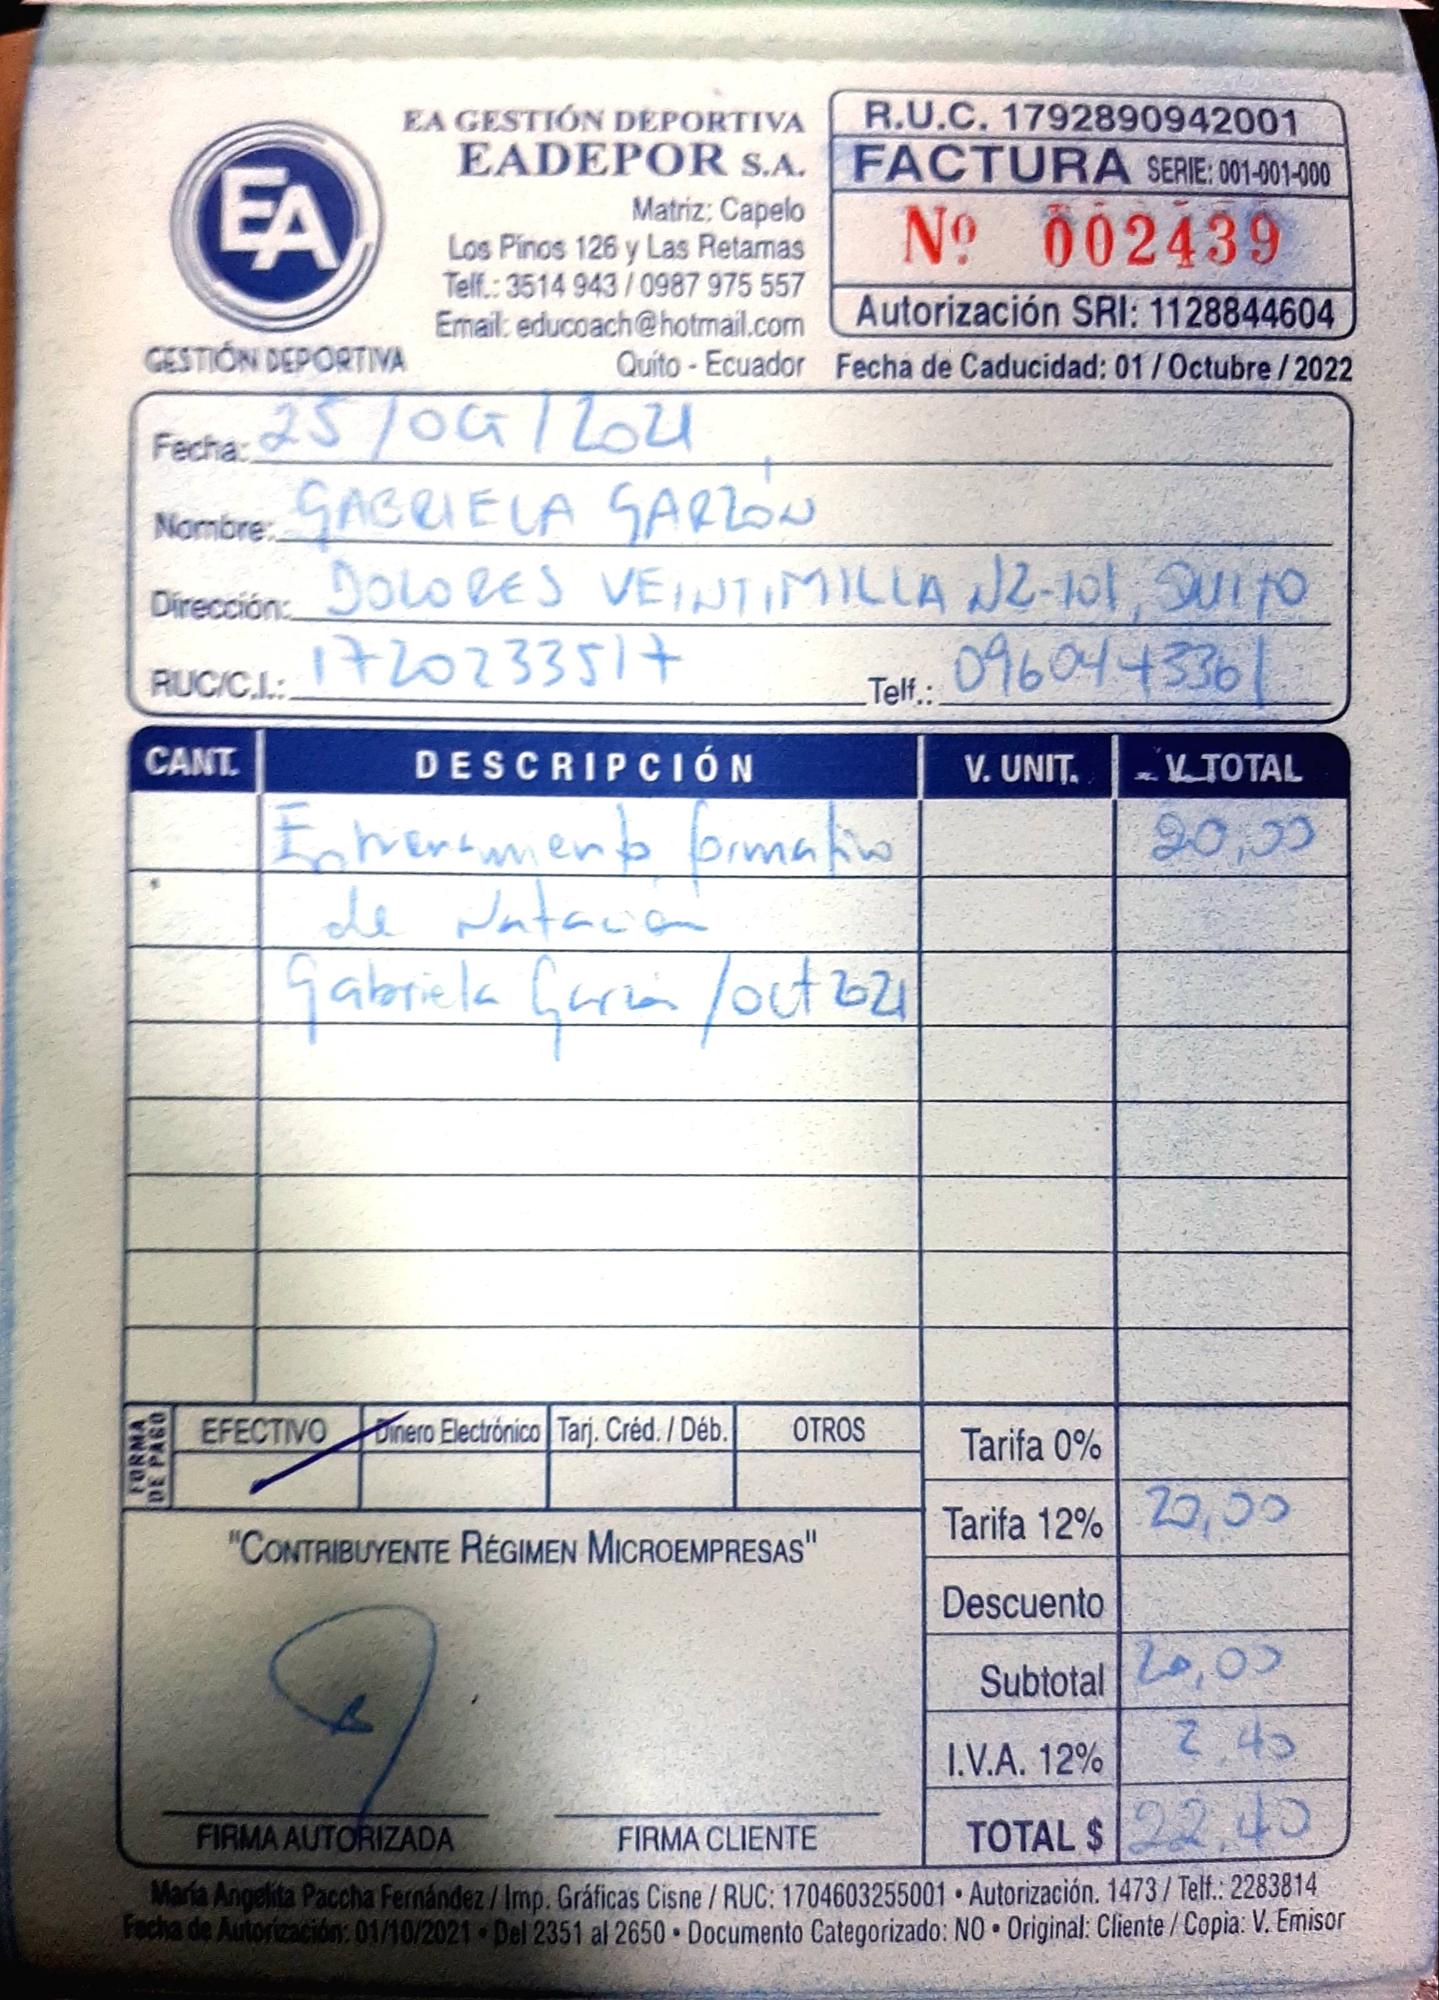 EA
GESTIÓN DEPORTIVA
EA GESTIÓN DEPORTIVA
EADEPOR S.A.
Matriz: Capelo
Los Pinos 126 y Las Retamas
Telf.: 3514 943 / 0987 975 557
Email: educoach@hotmail.com
Quito - Ecuador
R.U.C. 1792890942001
FACTURA SERIE: 001-001-000
Nº 002439
Autorización SRI: 1128844604
Fecha de Caducidad: 01 / Octubre / 2022
Fecha: 25/Oct/2021
Nombre: GABRIELA GARZÓN
Dirección: DOLORES VEINTIMILLA N2-101, QUITO
RUC/C.I.: 1720233517 Telf.:
CANT. DESCRIPCIÓN V. UNIT. V. TOTAL
Entrenamiento formativo 20,00
de Natación
Gabriela Garzón /oct 2021
FORMA DE PAGO
EFECTIVO Dinero Electrónico Tarj. Créd. / Déb. OTROS
Tarifa 0%
Tarifa 12% 20,00
"CONTRIBUYENTE RÉGIMEN MICROEMPRESAS"
Descuento
Subtotal 20,00
I.V.A. 12% 2.40
TOTAL $ 22.40
FIRMA AUTORIZADA FIRMA CLIENTE
María Angelita Paccha Fernández / Imp. Gráficas Cisne / RUC: 1704603255001 • Autorización. 1473 / Telf.: 2283814
Fecha de Autorización: 01/10/2021 • Del 2351 al 2650 • Documento Categorizado: NO • Original: Cliente / Copia: V. Emisor